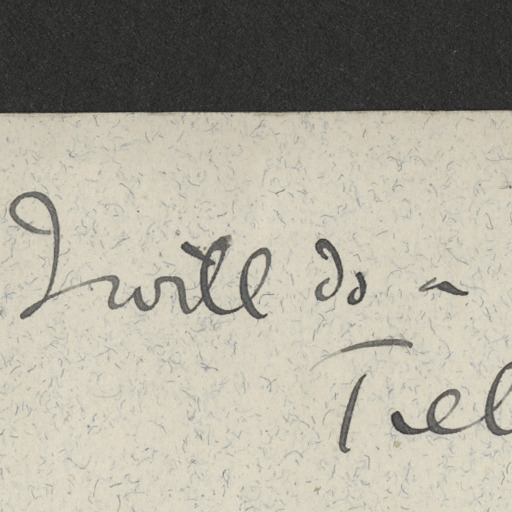 I will do a
Tel